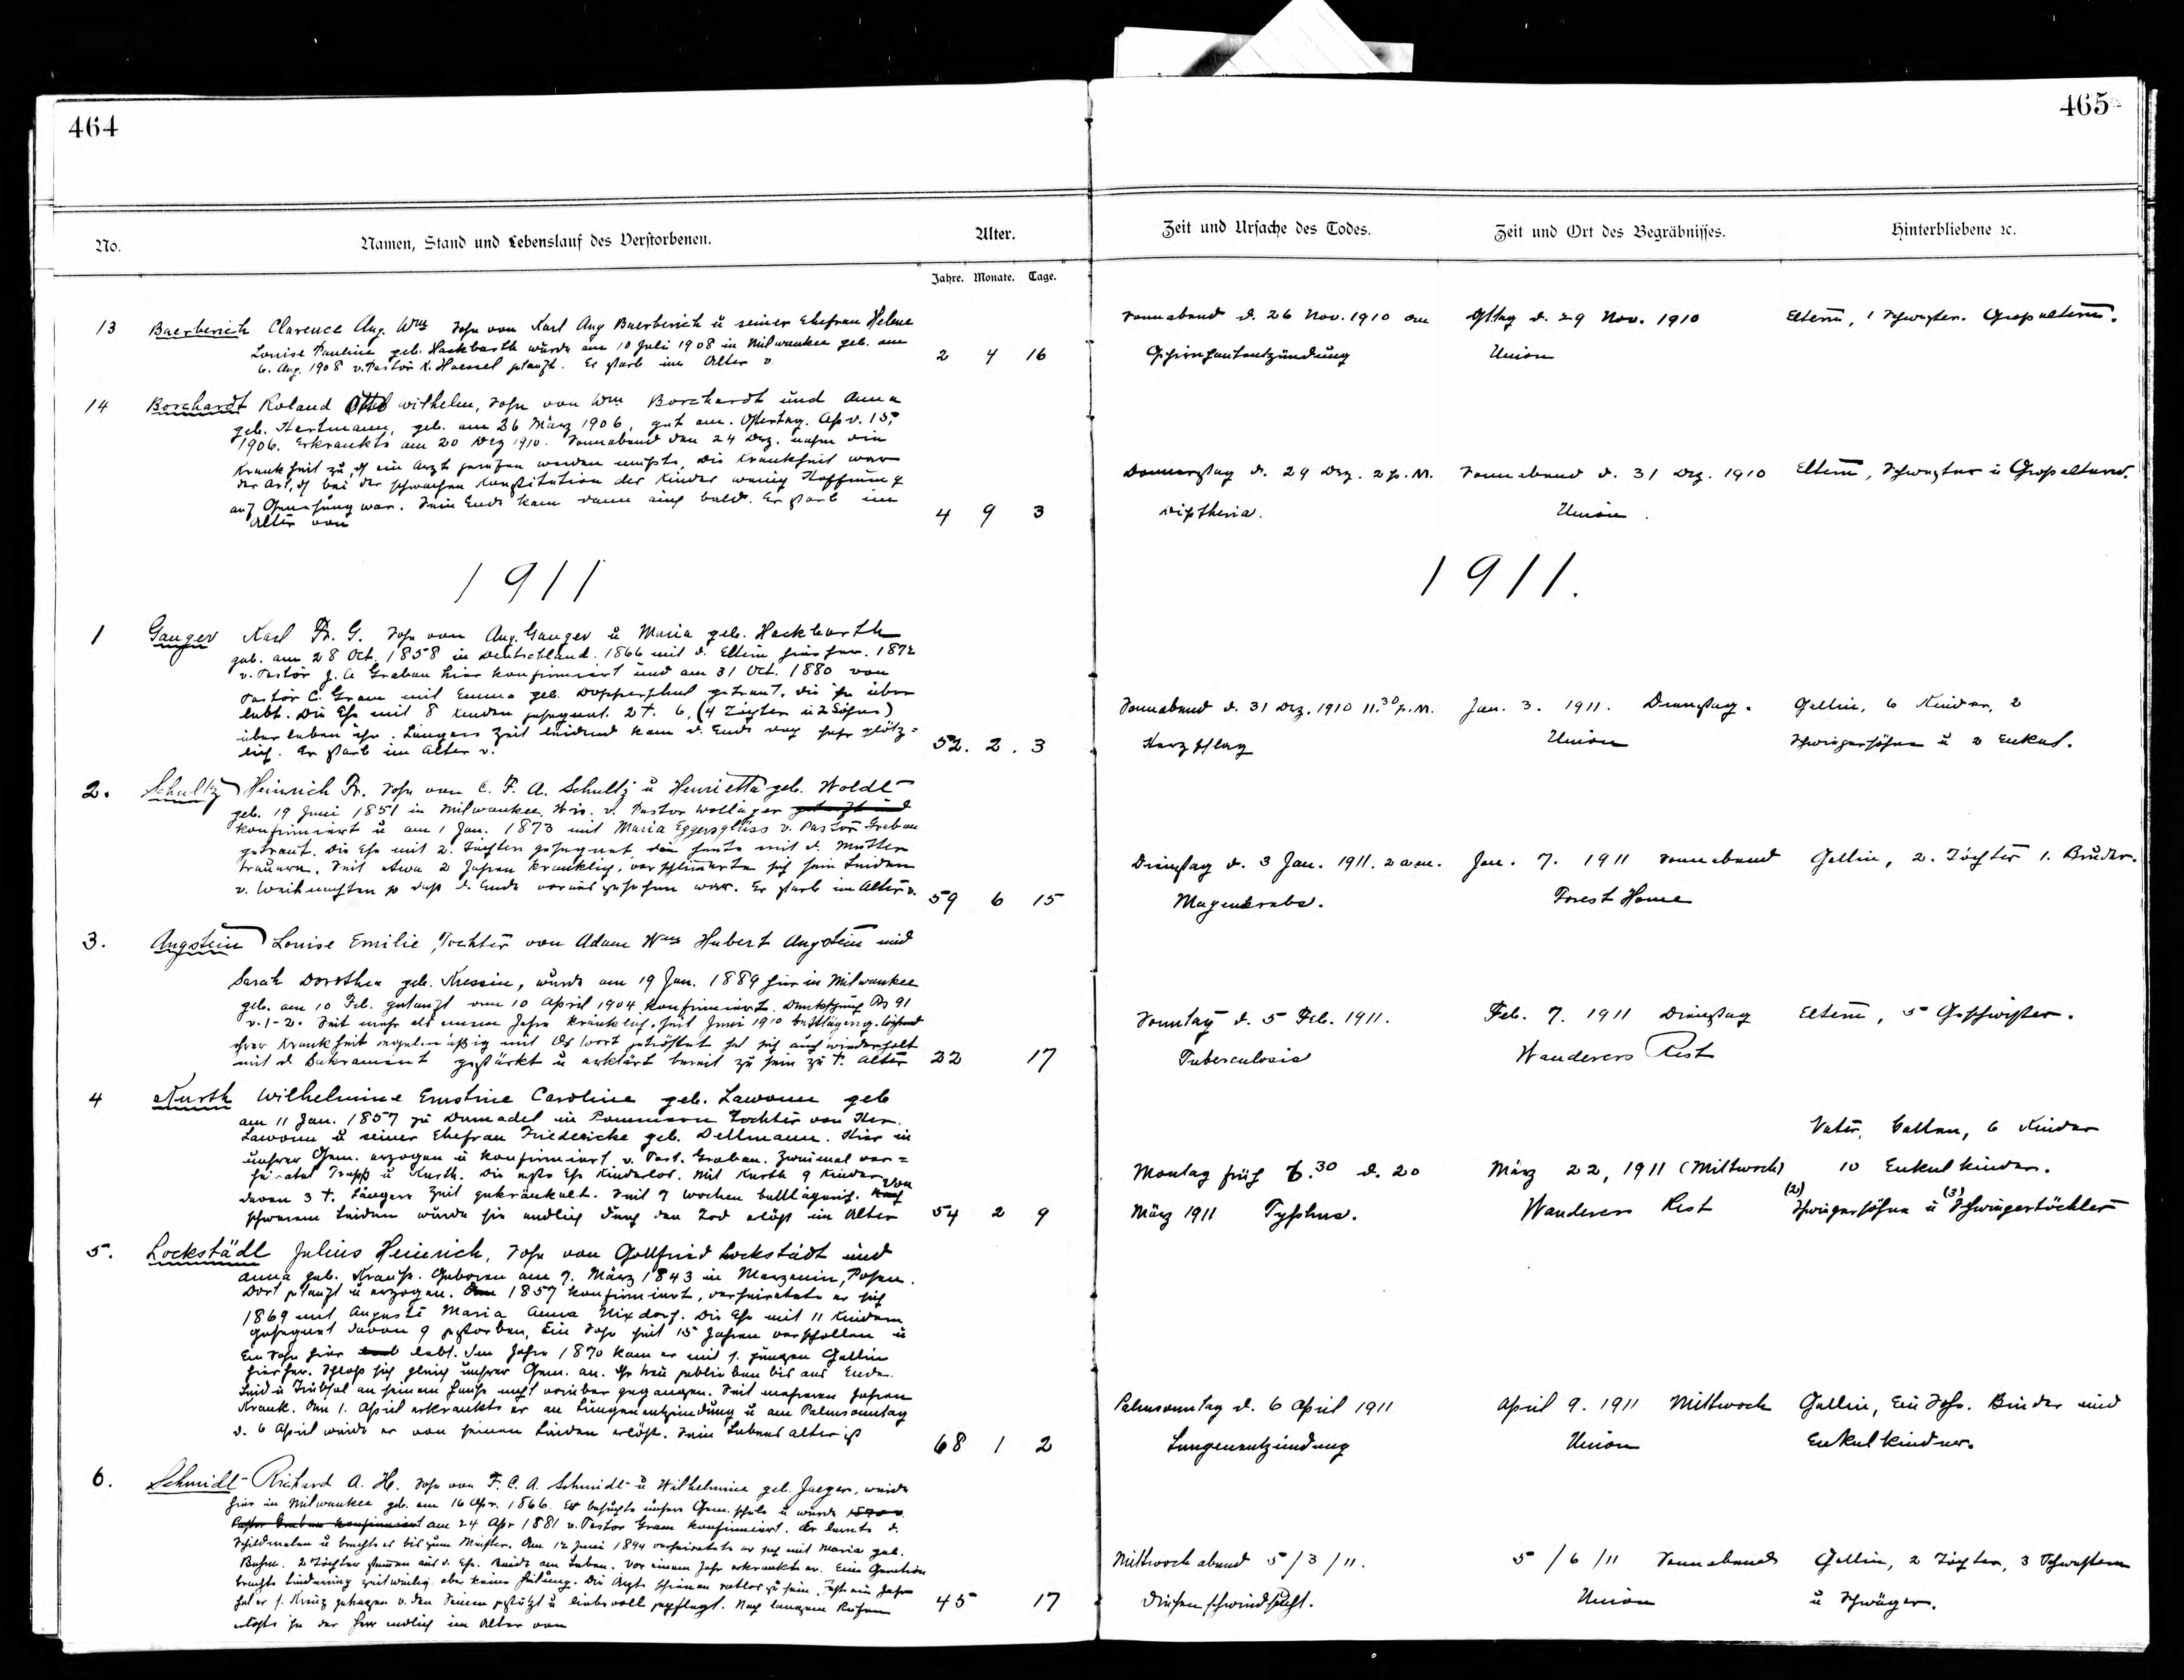 464
465
No.
Namen, Stand und Lebenslauf des Verstorbenen.
Alter.
Jahre. Monate. Tage.
Zeit und Ursache des Todes.
Zeit und Ort des Begräbnisses.
Hinterbliebene ꝛc.
13 Baerberich Clarence Aug. Wm Sohn von Karl Aug Baerberich u seiner Ehefrau Helene
Louise Pauline geb. Hackbarth wurde am 10 Juli 1908 in Milwaukee geb. am
6. Aug. 1908 v. Pastor K. Haessel getauft. Er starb im Alter v 2 4 16
Sonnabend d. 26 Nov. 1910 an
Gehirnhautentzündung
d. 29 Nov. 1910
Union
Eltern, 1 Schwester. Großeltern.
14 Borchardt Roland Wilhelm, Sohn von Wm Borchardt und Anna
geb. Hertmann, geb. am 26 März 1906, get am. Ostertag. Apr. 15,
1906. Erkrankte am 20 Dez 1910. Sonnabend den 24 Dez. nahm die
Krankheit zu, ein Arzt gerufen werden mußte, die Krankheit war
der Art, bei der schwachen Konstitution des Kindes wenig Hoffnung
auf Genesung war. Sein Ende kam dann auch bald. Er starb im
Alter von 4 9 3
Donnerstag d. 29 Dez. 2 p. M.
Diptheria.
Sonnabend d. 31 Dez. 1910
Union.
Eltern, Schwester u Großeltern.
1911
1911.
1 Gauger Karl Fr. G. Sohn von Aug. Gauger u Maria geb. Hackbarth
geb. am 28 Oct. 1858 in Deutschland. 1866 mit d. Eltern hierher. 1872
v. Pastor J. A Grabau hier konfirmiert und am 31 Oct. 1880 von
Pastor C. Gram mit Emma geb. getraut, die ihn über
lebt. Die Ehe mit 8 Kindern gesegnet. 2 †. 6, (4 Töchter u 2 Söhne)
überleben ihn. Längere Zeit leidend kam d. Ende doch sehr plötz=
lich. Er starb im Alter v. 52. 2. 3
Sonnabend d. 31 Dez. 1910 11.30 p. M.
Herzschlag
Jan. 3. 1911. Dienstag.
Union
Gattin, 6 Kinder, 2
Schwiegersöhne u 2 Enkel.
2. Schultz Heinrich Fr. Sohn von C. F. A. Schultz u Henrietta geb. Woldt
geb. 19 Juni 1851 in Milwaukee, Wis. v. Pastor Wollager getauft und
konfirmiert u am 1 Jan. 1873 mit Maria Eggersglüss v. Pastor Grabau
getraut. Die Ehe mit 2. Töchtern gesegnet die heute mit d. Mutter
trauern. Seit etwa 2 Jahren kränklich, verschlimmerte sich sein Leiden
v. Weihnachten so daß d. Ende vorauszusehen war. Er starb im Alter v. 59 6 15
Dienstag d. 3 Jan. 1911. 2 a.m.
Magenkrebs.
Jan. 7. 1911 Sonnabend
Forest Home
Gattin, 2. Töchter 1. Bruder.
3. Angstein Louise Emilie, Tochter von Adam Wm Hubert Angstein und
Sarah Dorothea geb. Kressin, wurde am 19 Jan. 1889 hier in Milwaukee
geb. am 10 Feb. getauft am 10 April 1904 konfirmiert. Denkspruch Ps 91
v. 1-2. Seit mehr als einem Jahre kränklich, seit Juni 1910 bettlägerig. Während
ihrer Krankheit regelmäßig mit Wort getröstet hat sich auch wiederholt
mit d. Sakrament gestärkt u erklärt bereit zu sein zu †. Alter 22 17
Sonntag d. 5 Feb. 1911.
Tuberculosis
Feb. 7. 1911 Dienstag
Wanderers Rest
Eltern, 5 Geschwister.
4 Kurth Wilhelmine Ernstine Caroline geb. Lawonn geb
am 11 Jan. 1857 zu Damadel in Pommern Tochter von
Lawonn u seiner Ehefrau Friedericke geb. Dellmann. Hier in
unsrer Gem. erzogen u konfirmiert v. Past. Grabau. Zweimal ver=
heiratet u Kurth. Die erste Ehe Kinderlos. Mit Kurth 9 Kinder
davon 3 †. Längere Zeit gekränkelt. Seit 7 Wochen bettlägerig. Nach
schwerem Leiden wurde sie endlich durch den Tod erlöst im Alter von 54 2 9
Montag früh 6.30 d. 20
März 1911 Typhus.
März 22, 1911 (Mittwoch)
Wanderers Rest
Vater, Gatten, 6 Kinder
10 Enkelkinder.
(2) Schwiegersöhne u (3) Schwiegertöchter
5. Lockstädt Julius Heinrich, Sohn von Gottfried Lockstädt und
Anna geb. Krause. Geboren am 7. März 1843 in Marzenin, Posen.
Dort getauft u erzogen. 1857 konfirmiert, verheiratete er sich
1869 mit Auguste Maria Anna Nixdorf. Die Ehe mit 11 Kindern
gesegnet davon 9 gestorben, Ein Sohn seit 15 Jahren verschollen u
Ein Sohn hier lebt. Im Jahre 1870 kam er mit s. jungen Gattin
hierher. Schloß sich gleich unsrer Gem. an. Ihr treu geblieben bis ans Ende.
Leid u Trübsal an seinem Hause nicht vorüber gegangen. Seit mehreren Jahren
Krank. Am 1. April erkrankte er an Lungenentzündung u am Palmsonntag
d. 6 April wurde er von seinem Leiden erlöst. Sein Lebensalter ist 68 1 2
Palmsonntag d. 6 April 1911
Lungenentzündung
April 9. 1911 Mittwoch
Union
Gattin, Ein Sohn. Bruder und
Enkelkinder.
6. Schmidt Richard A. H. Sohn von F. C. A. Schmidt u Wilhelmine geb. Jaeger, wurde
hier in Milwaukee geb. am 16 Apr. 1866. Er besuchte unsere Gem. schule u wurde
Pastor Grabau konfirmiert am 24 Apr 1881 v. Pastor Gram konfirmiert. Er lernte d.
Schildmalen u brachte es bis zum Meister. Am 12 Juni 1894 verheiratete er sich mit Maria geb.
2 Töchter stammen aus d. Ehe. Beide am Leben. Vor einem Jahr erkrankte er. Eine Operation
brachte Linderung zeitweilig aber keine Heilung. Die Ärzte schienen ratlos zu sein. Fast ein Jahr
hat er s. Kreuz getragen v. den Seinen gestützt u liebevoll gepflegt. Nach langem Ruhen
erlöste ihn der Herr endlich im Alter von 45 17
Mittwoch abend 5/3/11.
Drüsenschwindsucht.
5/6/11 Sonnabend
Union
Gattin, 2 Töchter, 3 Schwestern
u Schwäger.